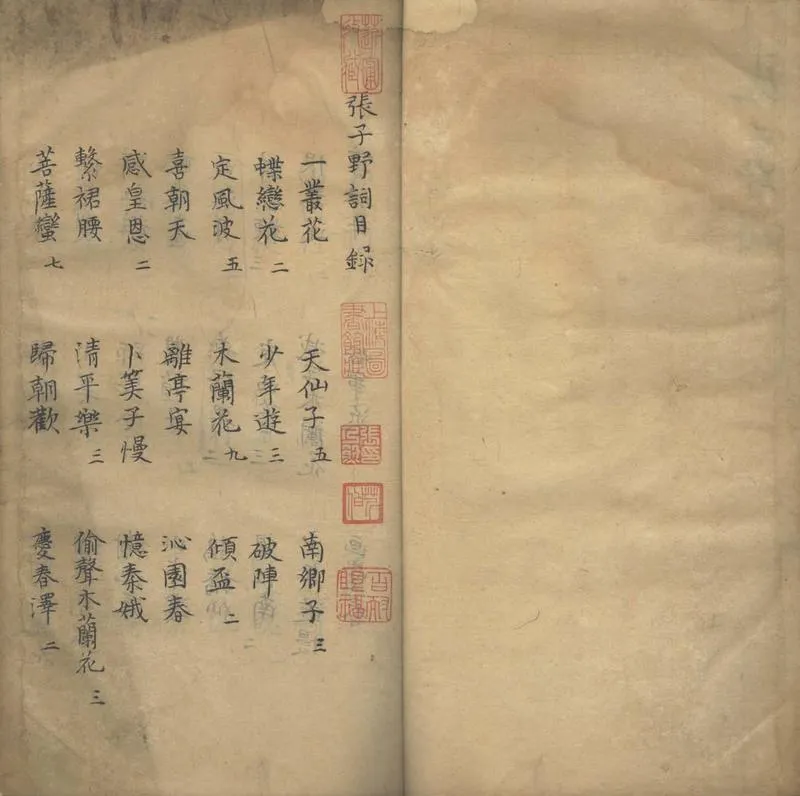 張子野詞目錄
一叢花 天仙子五 南鄉子三
蝶戀花二 少年遊三 破陣
定風波五 木蘭花九 傾盃二
喜朝天 離亭宴 沁園春
感皇恩二 卜筭子慢 憶秦娥
繫裙腰 清平樂三 偷聲木蘭花三
菩薩蠻七 歸朝歡 慶春澤二
上海圖書館藏